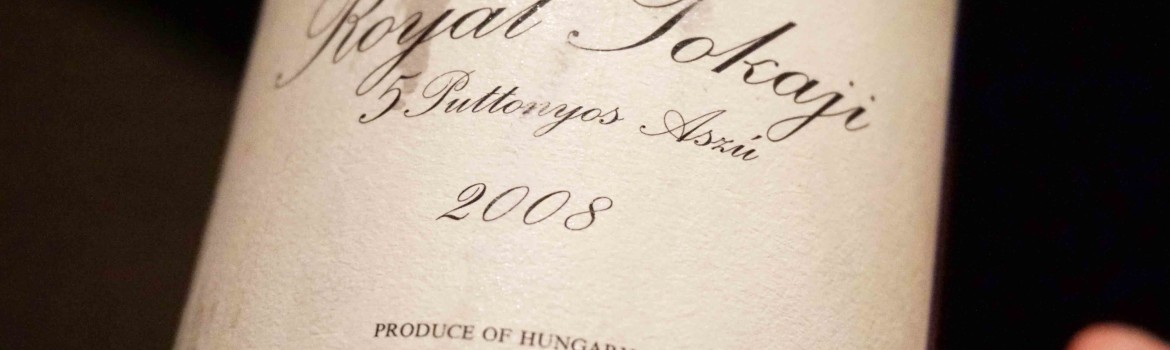 Royal Tokaji
5 Puttonyos Aszú
2008
PRODUCE OF HUNGARY